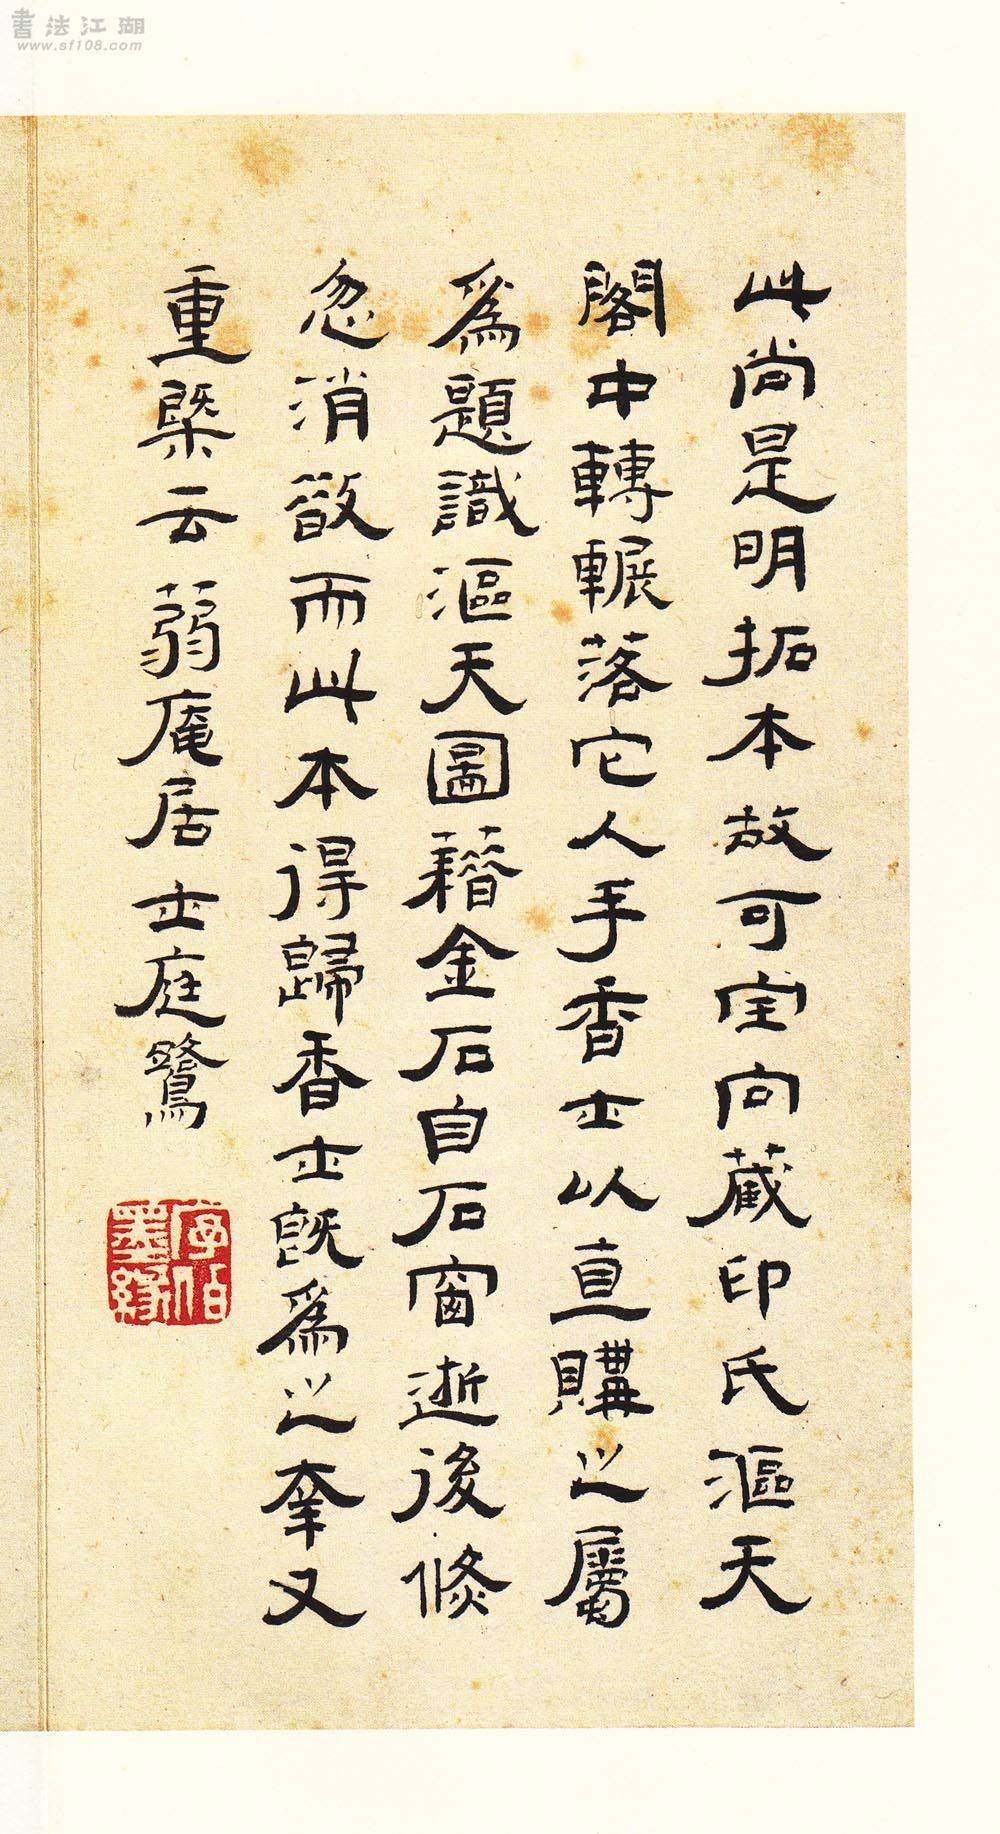 書法江湖
www.sf108.com
此尚是明拓本故可宝向藏印氏漚天
閣中轉輾落它人手香士以直購之屬
為題識漚天圖藉金石自石窗逝後倏
忽消散而此本得歸香士既為之幸又
重槩云蒻庵居士庭鷺